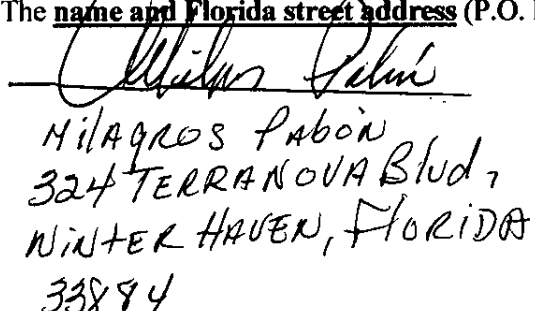 The name and Florida street address (P.O.
Milagros Pabón
MilAgROS PABON
324 TERRANOVA Blvd,
WiNtER HAVEN, FloRiDA
33884